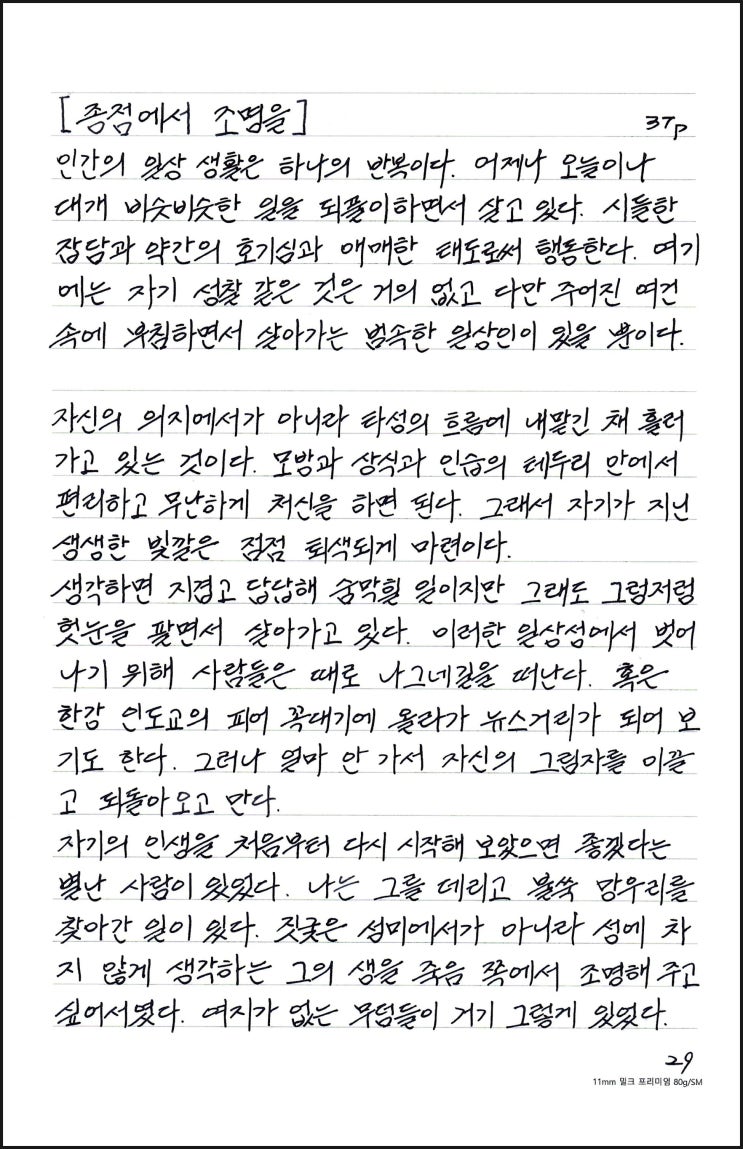 [종점에서 조명을] 37p
인간의 일상 생활은 하나의 반복이다. 어제나 오늘이나
대개 비슷비슷한 일을 되풀이하면서 살고 있다. 시들한
잡담과 약간의 호기심과 애매한 태도로써 행동한다. 여기
에는 자기 성찰 같은 것은 거의 없고 다만 주어진 여건
속에 부침하면서 살아가는 범속한 일상인이 있을 뿐이다.
자신의 의지에서가 아니라 타성의 흐름에 내맡긴 채 흘러
가고 있는 것이다. 모방과 상식과 인습의 테두리 안에서
편리하고 무난하게 처신을 하면 된다. 그래서 자기가 지닌
생생한 빛깔은 점점 퇴색되게 마련이다.
생각하면 지겹고 답답해 숨막힐 일이지만 그래도 그럼저럼
헛눈을 팔면서 살아가고 있다. 이러한 일상성에서 벗어
나기 위해 사람들은 때로 나그네길을 떠난다. 혹은
한강 인도교의 피어 꼭대기에 올라가 뉴스거리가 되어 보
기도 한다. 그러나 얼마 안 가서 자신의 그림자를 이끌
고 되돌아오고 만다.
자기의 인생을 처음부터 다시 시작해 보았으면 좋겠다는
별난 사람이 있었다. 나는 그를 데리고 불쑥 망우리를
찾아간 일이 있다. 짓궂은 성미에서가 아니라 성에 차
지 않게 생각하는 그의 생을 죽음 쪽에서 조명해 주고
싶어서였다. 여지가 없는 무덤들이 거기 그렇게 있었다.
29
11mm 밀크 프리미엄 80g/SM